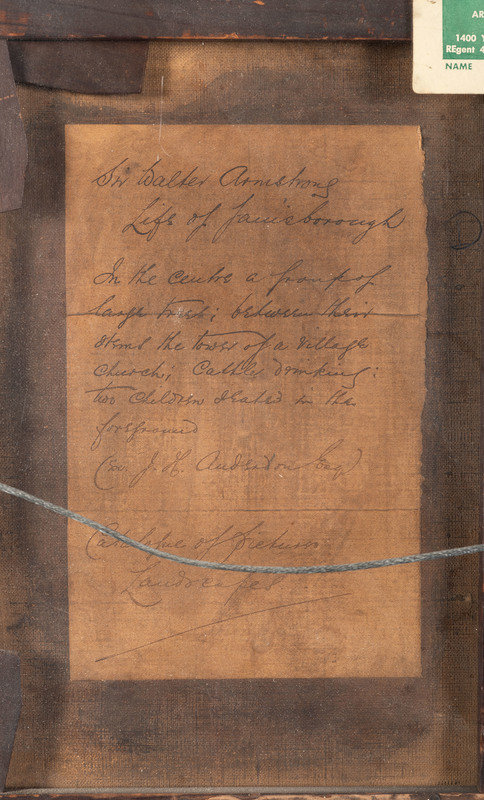 AR
1400 Y
REgent 4
NAME
Sir Walter Armstrong
Life of Gainsborough
In the centre a group of
large trees; between their
stems the tower of a village
church; Cattle drinking:
two children seated in the
foreground
J. H. Anderdon Esq
Catalogue of pictures
Landscapes